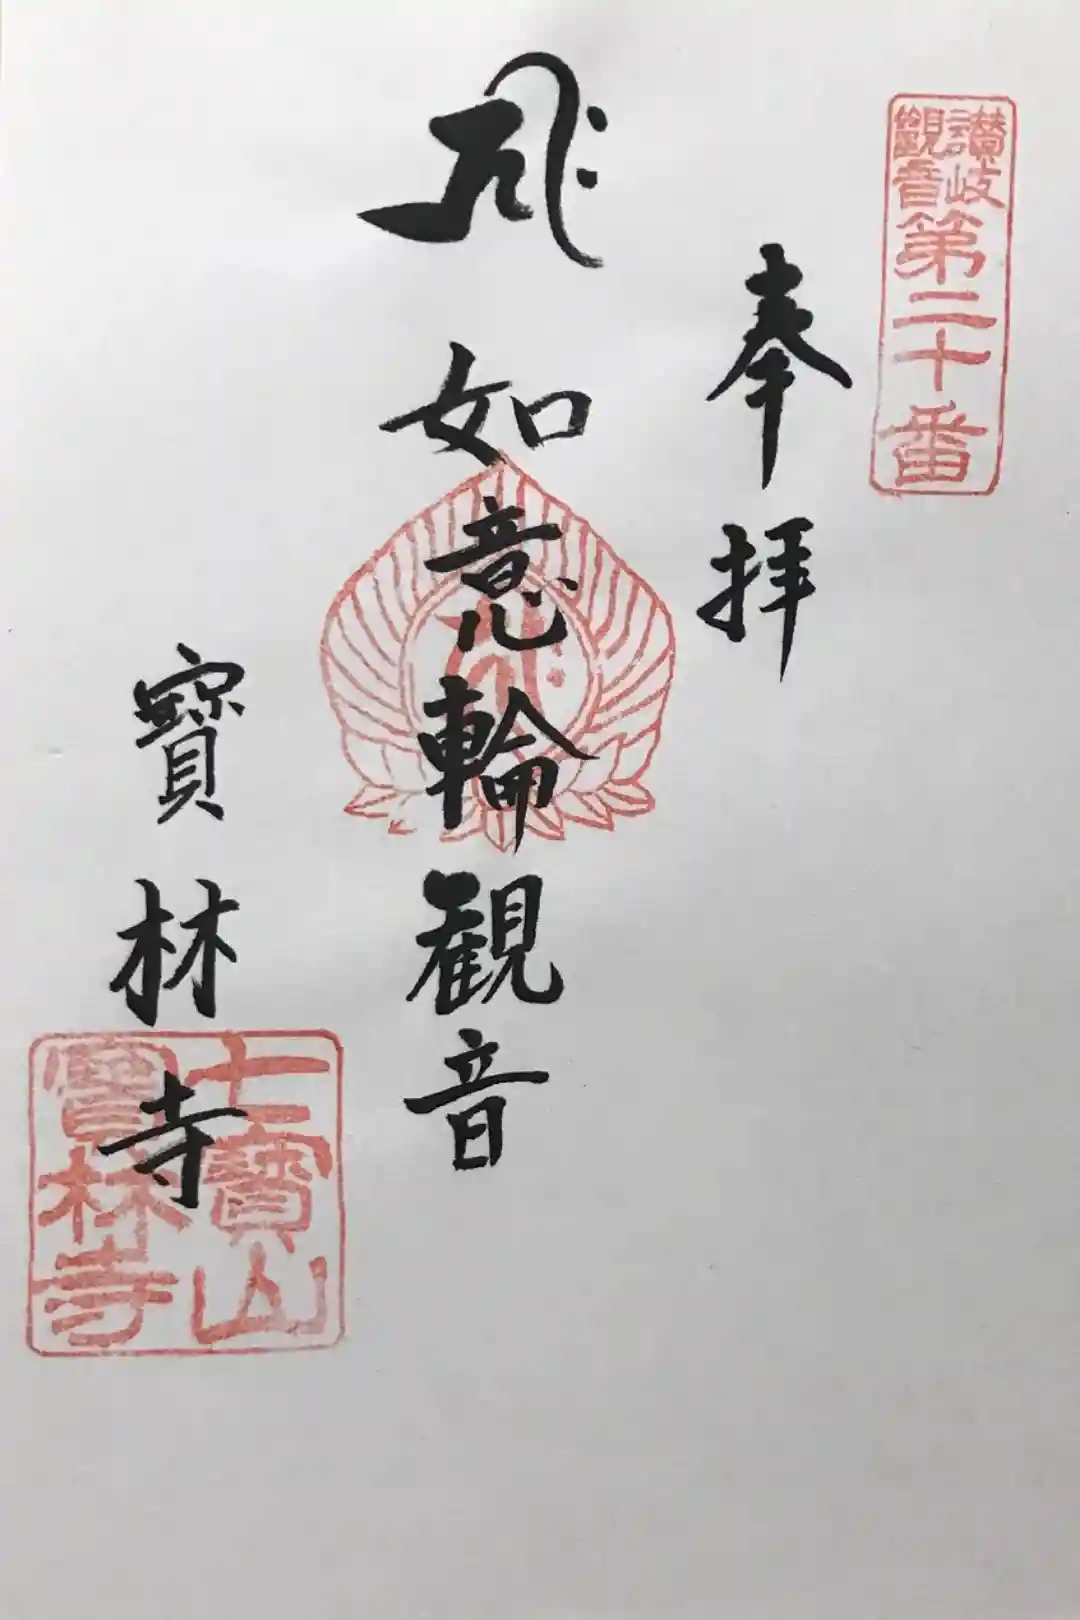 讃岐
觀音
第二十番
奉拝
𑖮𑖿𑖨𑖱𑖾
如意輪観音
寳林寺
七寳山
寳林寺